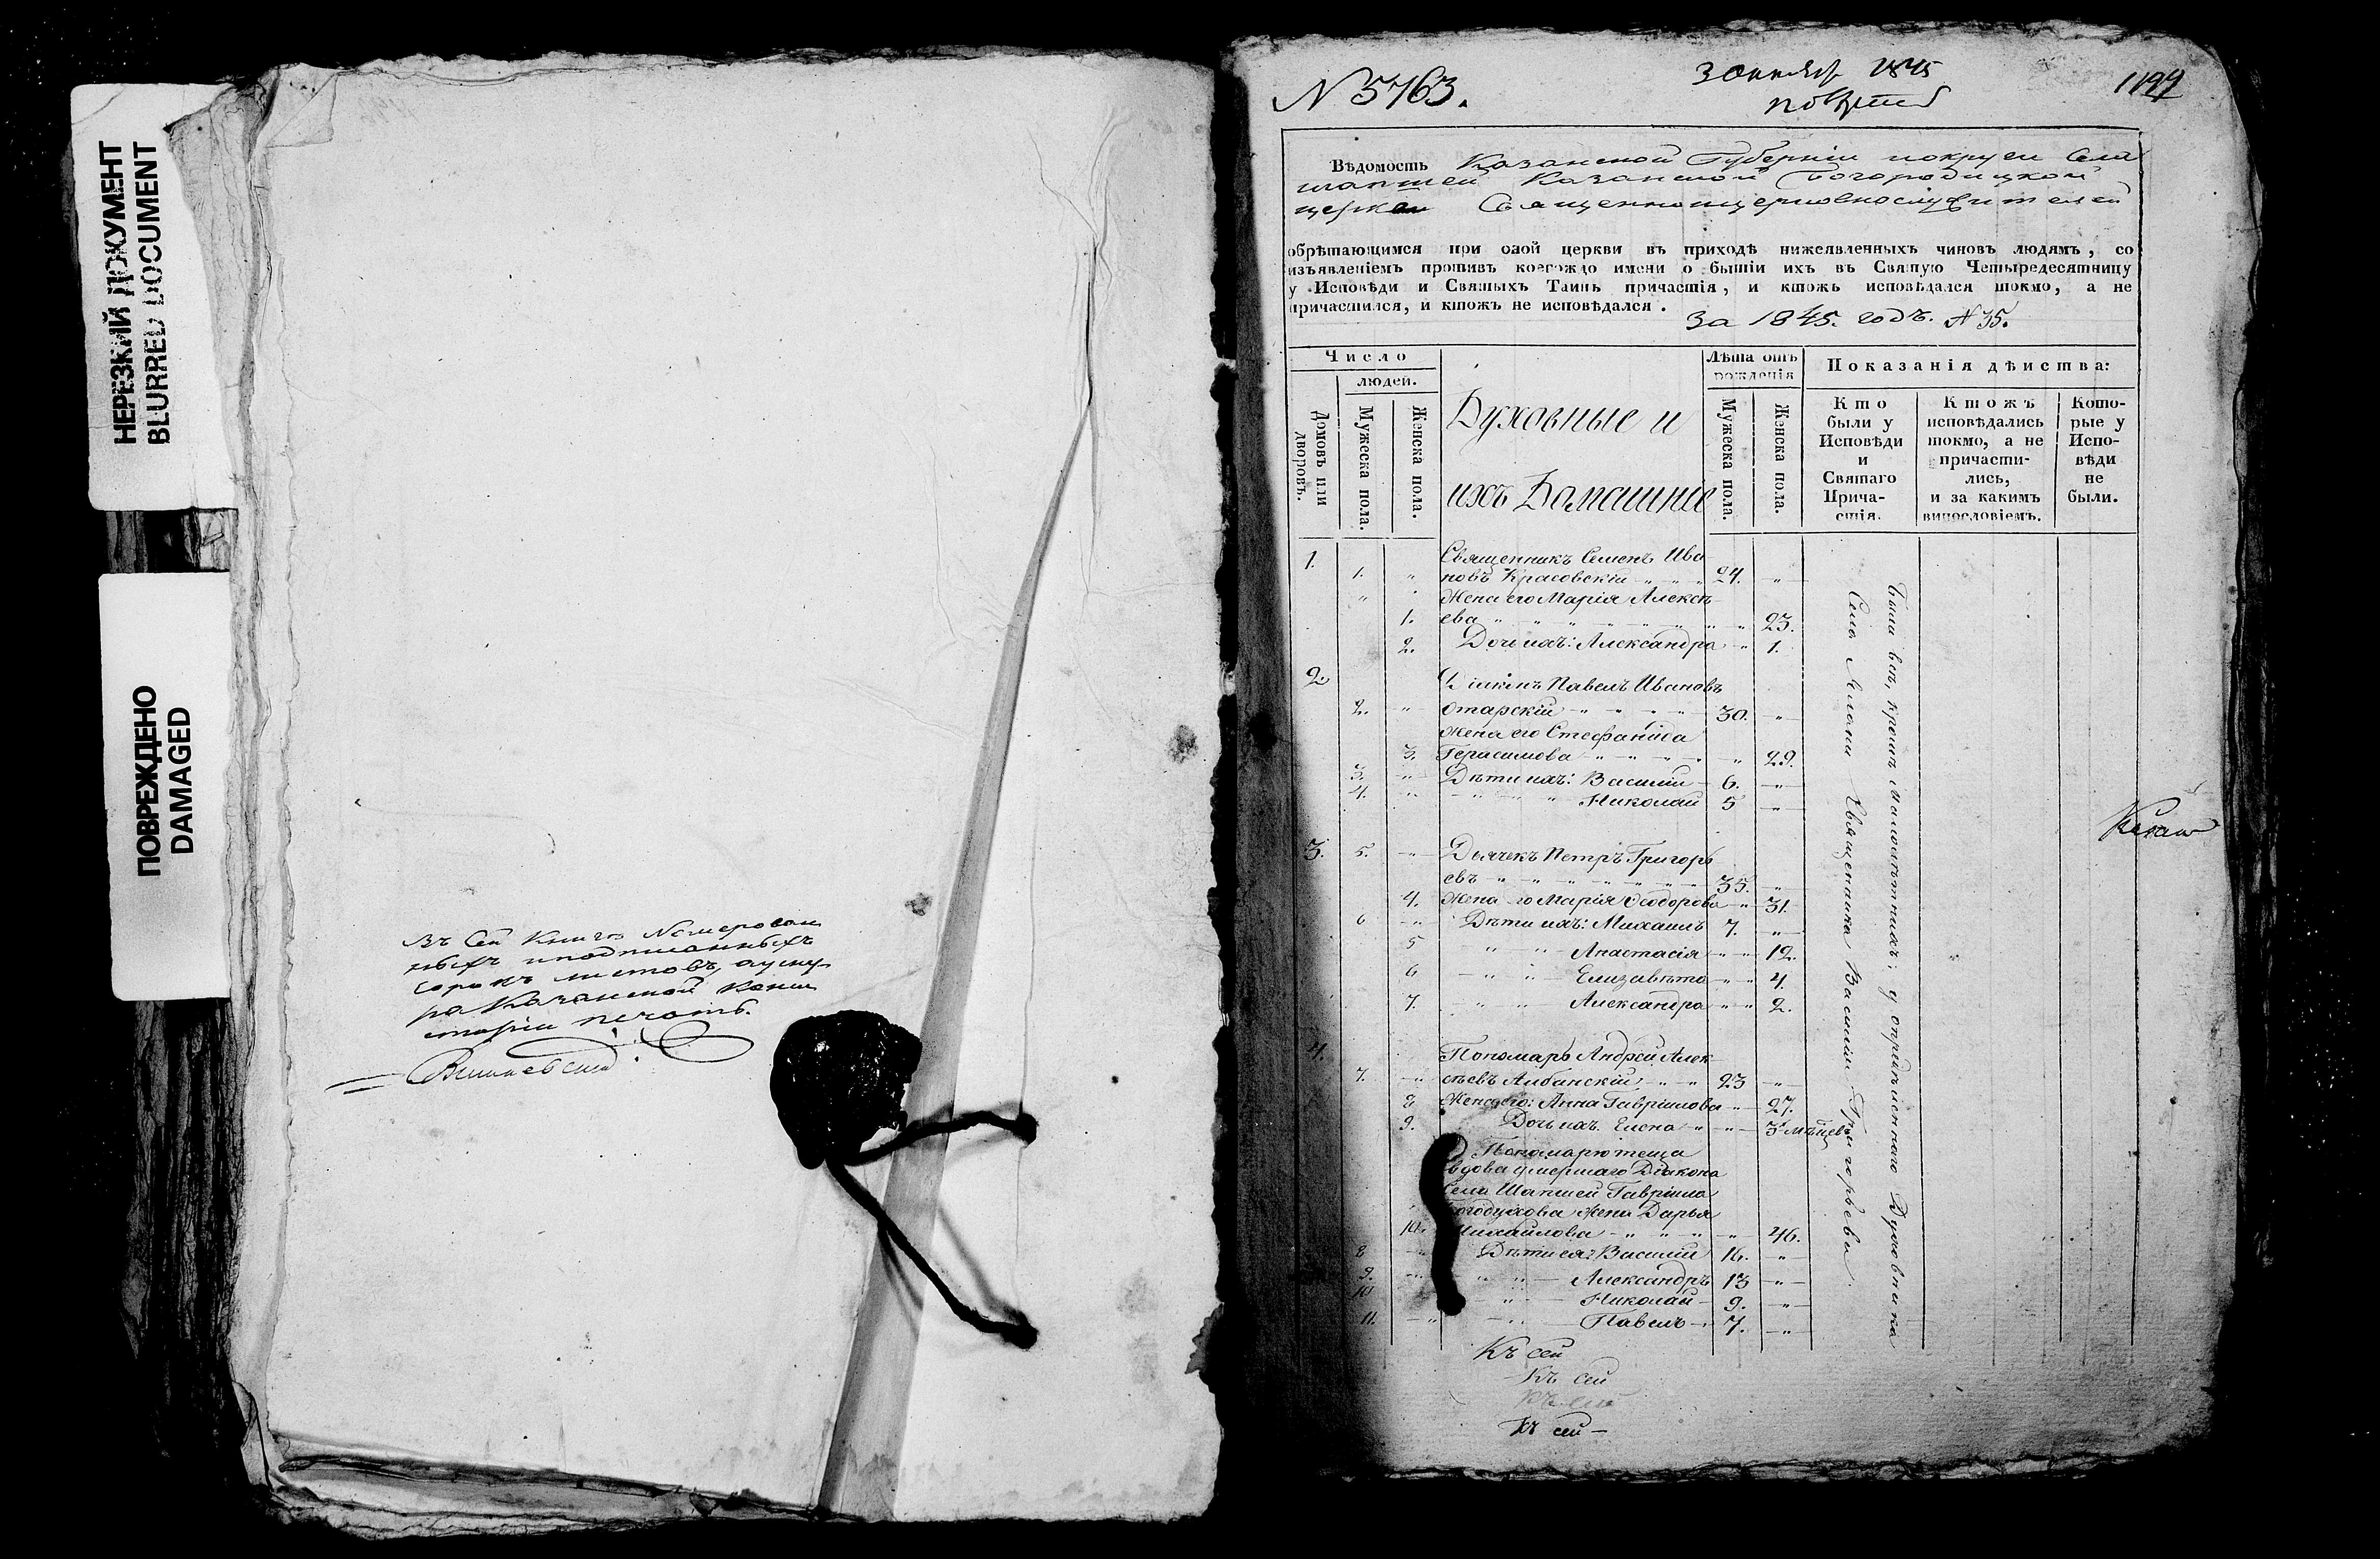 НЕРЕЗКИЙ ДОКУМЕНТ
BLURRED DOCUMENT
ПОВРЕЖДЕНО
DAMAGED
Въ сей Книгѣ Номерован
ныхъ
сорокъ листовъ,
ра Казанской Конси
сторіи печать.
N 5763.
3 Октября 1845
1199
Вѣдомость Казанской Губерніи округи Села
Шапшей Казанской Богородицкой
церкви Священноцерковнослужителей
обрѣтающимся при оной церкви въ приходѣ нижеявленныхъ чиновъ людямъ, со
изъявленіемъ противъ коегождо имени о бытіи ихъ въ Святую Четыредесятницу
у Исповѣди и Святыхъ Таинъ причастія, и ктожъ исповѣдался токмо, а не
причастился, и ктожъ не исповѣдался.
За 1845. годъ. N 35.
Число
людей.
Домовъ или дворовъ.
Мужеска пола.
Женска пола.
Духовные и
ихъ Домашніе
Лѣта отъ
рожденія
Мужеска пола.
Женска пола.
Показанія дѣйства:
Кто
были у
Исповѣди
и
Святаго
Прича-
стія.
Ктожъ
исповѣдались
токмо, а не
причасти-
лись,
и за какимъ
винословіемъ.
Кото-
рые у
Испо-
вѣди
не
были.
1. Священникъ Семенъ Ива
1. " новъ Красовскій " " " 24. "
" Жена его Марія Алексѣ
1. ева " " " " " " " 23.
2. Дочь ихъ: Александра " 1.
2. Діаконъ Павелъ Ивановъ
2. " Отарскій " " " " 30. "
Жена его Стефанида
3. Герасимова " " " " " 29.
3. " Дѣти ихъ: Василій 6. "
4. " " " " Николай 5 "
3. 5. " Дьячекъ Петръ Григорь
евъ " " " " " " " 35. "
4. Жена его Марія Ѳеодорова " 31.
6 " Дѣти ихъ: Михаилъ 7. "
5 " " Анастасія " " 12.
6 " " Елизавѣта " " 4.
7. " " Александра " " 2.
4. Пономарь Андрей Алек
7. " сѣевъ Албанскій " " 23 "
8 Жена его: Анна Гавріилова " 27.
9. Дочь ихъ. Елена " " 3 мѣсяцевъ
Пономарю теща
вдова умершаго Діакона
Села Шапшей Гавріила
Богодухова Жена Дарья
10. Михайлова " " " " 46.
8 " Дѣти ея: Василій 16. "
9. " " " Александръ 13 "
10 " Николай 9. "
11. " " Павелъ 7. "
Были всѣ, кромѣ малолѣтнихъ; у опредѣленнаго Духовника
Села Священника Василія Григорьева.
Къ сей
Къ сей
Къ сей
Къ сей